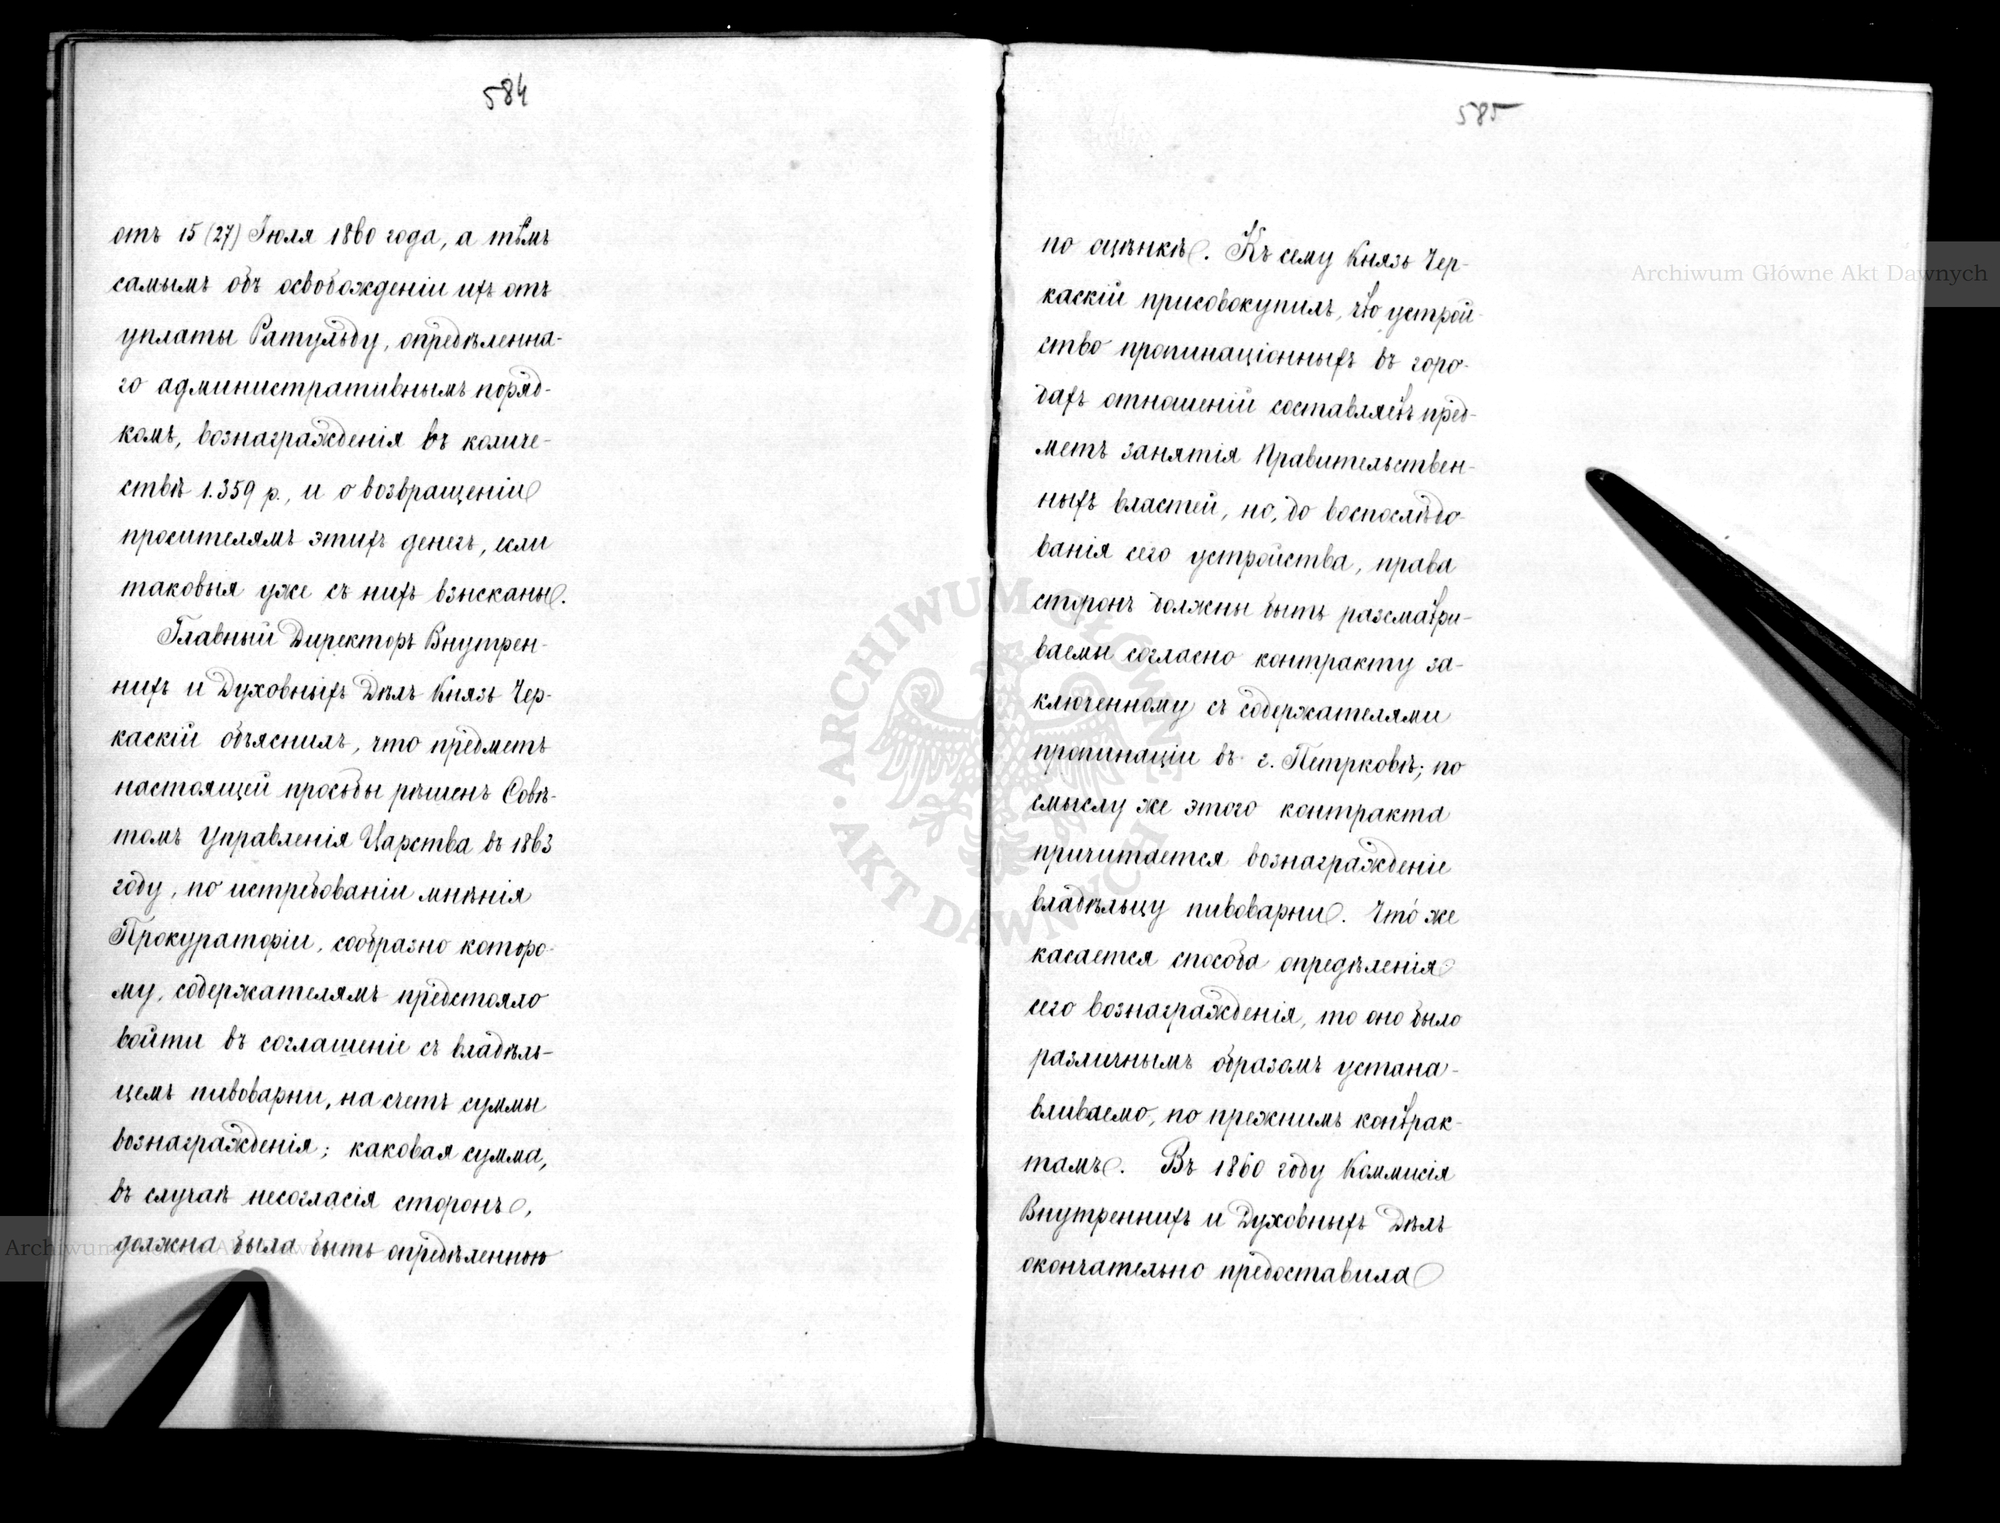 584
отъ 15 (27) Іюля 1860 года, а тѣмъ
самымъ объ освобожденіи ихъ отъ
уплаты Ратульду, опредѣленна-
го административнымъ поряд-
комъ, вознагражденія въ количе-
ствѣ 1.359 р., и о возвращеніи
просителямъ этихъ денегъ, если
таковыя уже съ нихъ взысканы.
Главный Директоръ Внутрен-
нихъ и Духовныхъ Дѣлъ Князь Чер-
каскій объяснилъ, что предметъ
настоящей просьбы рѣшенъ Совѣ-
томъ Управленія Царства въ 1863
году, по истребованіи мнѣнія
Прокураторіи, сообразно которо-
му, содержателямъ предстояло
войти въ соглашеніе съ владѣль-
цемъ пивоварни, на счетъ суммы
вознагражденія; каковая сумма,
въ случаѣ несогласія сторонъ,
должна была быть опредѣленною
585
по оцѣнкѣ. Къ сему Князь Чер-
каскій присовокупилъ, что устрой-
ство пропинаціонныхъ въ горо-
дахъ отношеній составляетъ пред-
метъ занятія Правительствен-
ныхъ властей, но, до воспослѣдо-
ванія сего устройства, права
сторонъ должны быть разсматри-
ваемы согласно контракту за-
ключенному съ содержателями
пропинаціи въ г. Петрковѣ; по
смыслу же этого контракта
причитается вознагражденіе
владѣльцу пивоварни. Что́ же
касается способа опредѣленія
сего вознагражденія, то оно было
различнымъ образомъ устана-
вливаемо, по прежнимъ контрак-
тамъ. Въ 1860 году Коммисія
Внутреннихъ и Духовныхъ Дѣлъ
окончательно предоставила
Archiwum Główne Akt Dawnych
ARCHIWUM GŁÓWNE AKT DAWNYCH